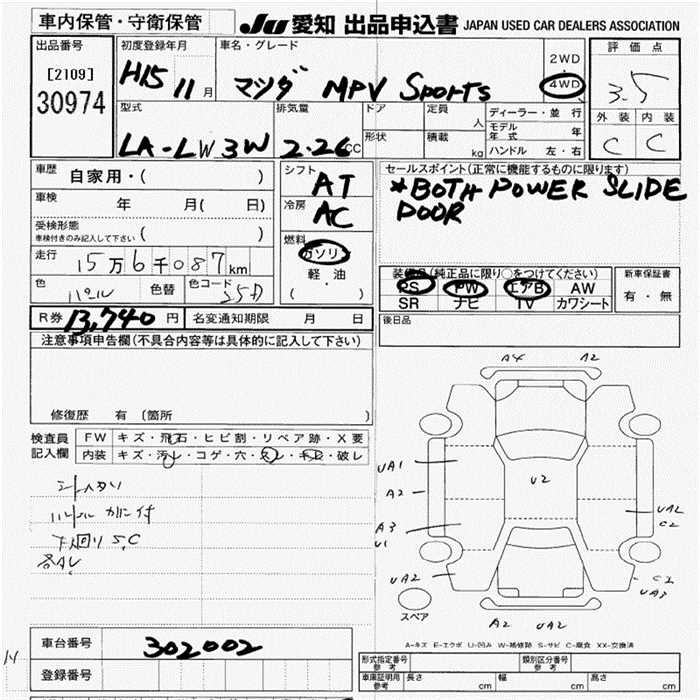 車内保管・守衛保管
JU 愛知 出品申込書 JAPAN USED CAR DEALERS ASSOCIATION
出品番号
[2109]
30974
初度登録年月
H15 11 月
車名・グレード
マツダ MPV Sports
2WD
・
4WD
評価点
3.5
外装 内装
C C
型式
LA-LW3W
排気量
2.26 CC
ドア
形状
定員 人
積載 kg
ディーラー・並行
モデル年式 年
ハンドル 左・右
車歴
自家用・( )
車検 年 月( 日)
受検形態
車検付きのみ記入して下さい ( )
走行 15万6千087 km
色 パール 色替 色コード 25D
シフト
AT
冷房
AC
燃料
ガソリン
軽・油
( )
セールスポイント(正常に機能するものに限ります)
*BOTH POWER SLIDE
DOOR
装備品(純正品に限り○をつけてください)
PS PW エアB AW
SR ナビ TV カワシート
新車保証書
有・無
R券 13,740 円 名変通知期限 月 日
後日品
注意事項申告欄(不具合内容等は具体的に記入して下さい)
修復歴 有 (箇所 )
検査員
記入欄
FW キズ・飛石・ヒビ割・リペア跡・X要
内装 キズ・汚レ・コゲ・穴・スレ・キレ・破レ
ハンドル カバー付
下回り S,C
A4 A2
UA1
A2
A3
U1
UA2
U2
UA2
C2
C2
UA3
スペア
A2 UA2
A-キズ E-エクボ U-凹み W-補修跡 S-サビ C-腐食 XX-交換済
車台番号 302002
登録番号
形式指定番号 参考
類別区分番号 参考
車庫証明用 参考 長さ cm 幅 cm 高さ cm